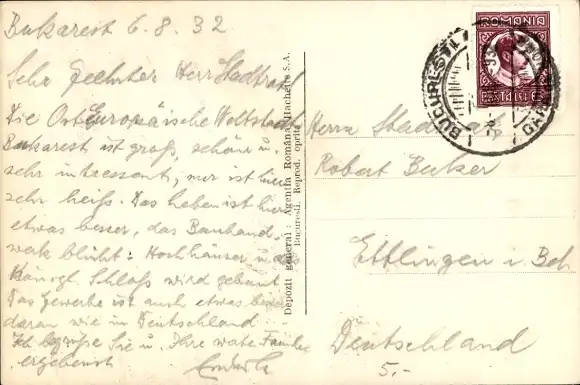 Bukarest 6.8.32
Sehr geehrter Herr Stadtrat
Die Osteuropäische Weltstadt
Bukarest ist groß, schön u.
sehr interessant, nur ist hier
sehr heiß. Das Leben ist hier
etwas besser, das Bauhand-
werk blüht: Hochhäuser u. das
Königl. Schloß wird gebaut
Das Gewerbe ist auch etwas besser
daran wie in Deutschland
Ich begrüße Sie u. Ihre werte Familie
ergebenst
Depozit general: Agentia Română Hachette S.A.
Bucuresti. Reprod. oprită
ROMANIA
BUCUREȘTI
GARA
Herrn Stadtrat
Robert Becker
Ettlingen i. Bd.
Deutschland
5.-